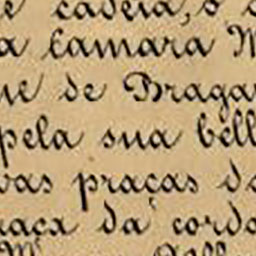 e cadeia, o
a Camara M
ue de Bragan
pela sua bell
vas praças d
raça da cord